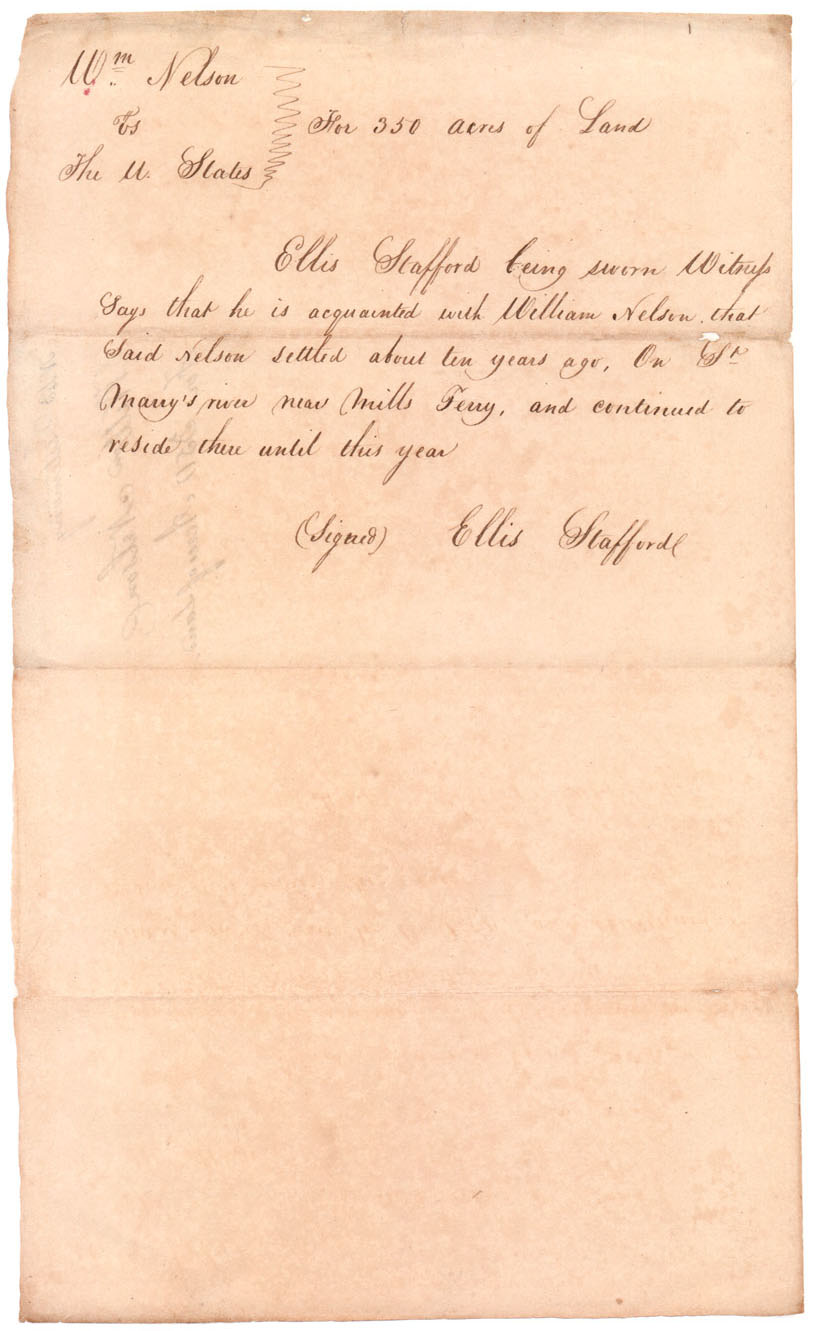 Wm Nelson
Vs
The U. States
For 350 acres of Land
Ellis Stafford being sworn Witness
Says that he is acquainted with William Nelson. that
Said Nelson settled about ten years ago, On St
Marry's river near Mills Ferry, and continued to
reside there until this year
(Signed) Ellis Stafford